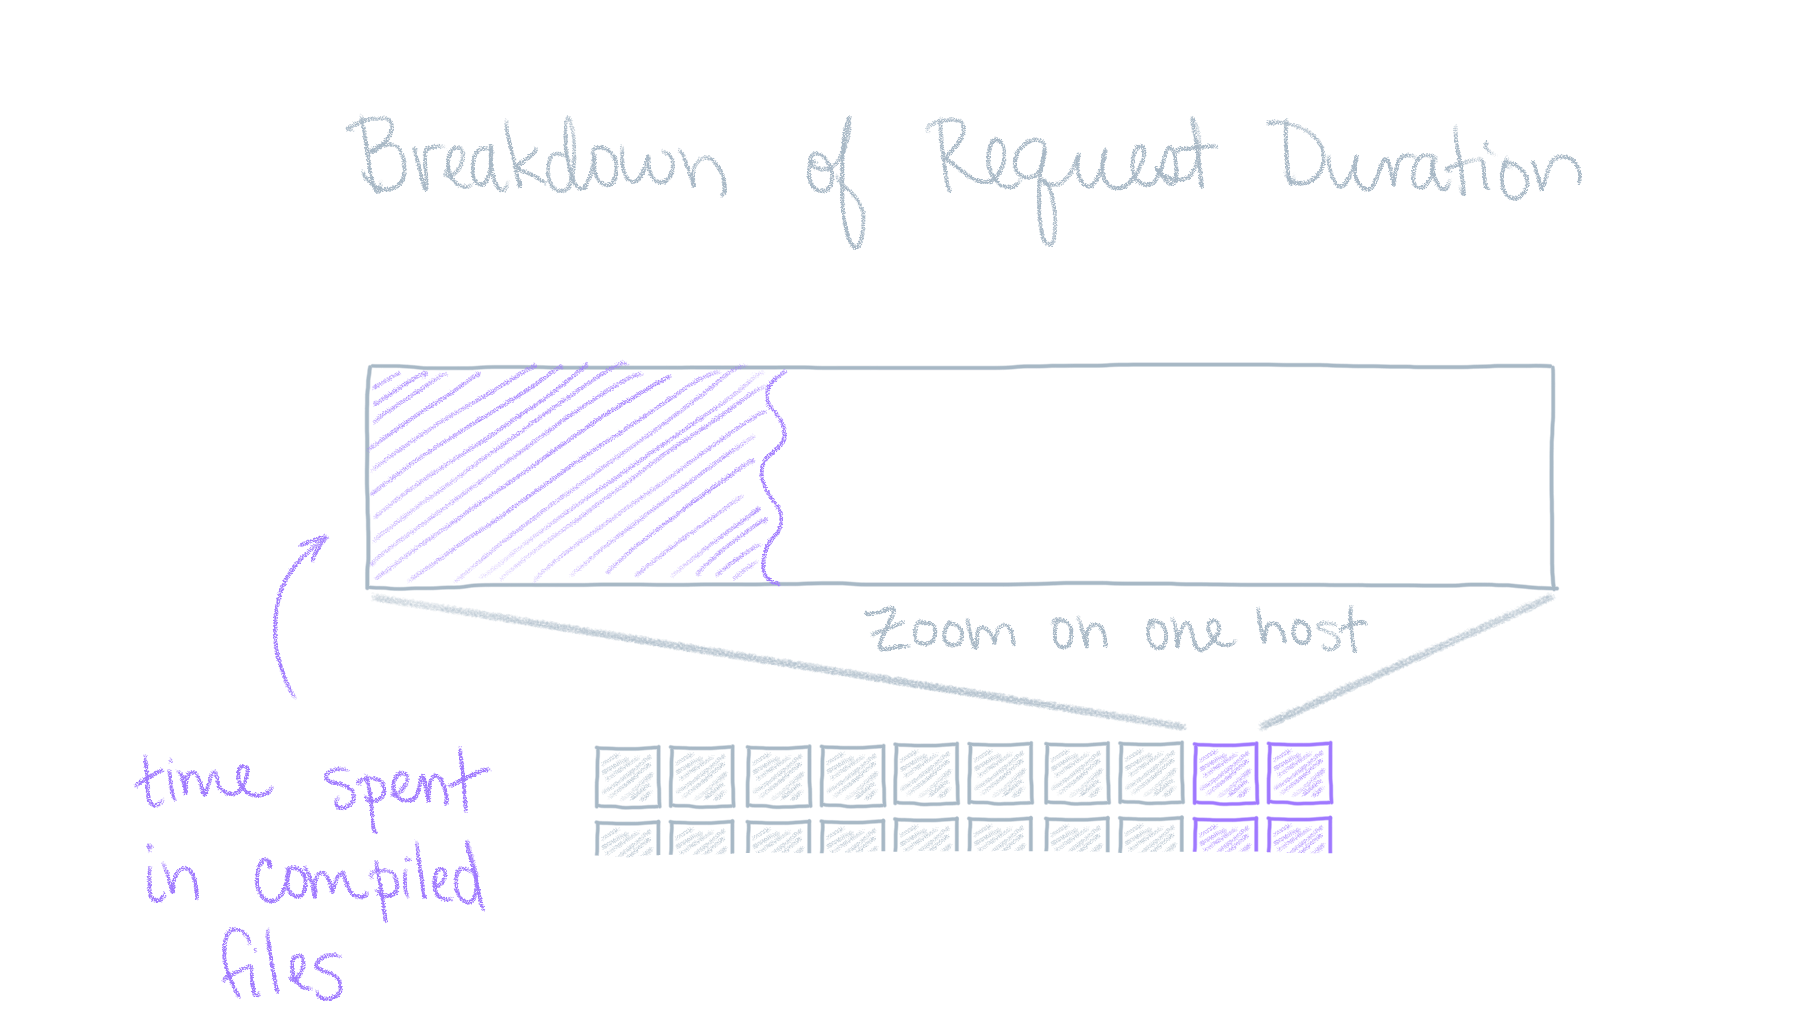 Breakdown of Request Duration
Zoom on one host
time spent
in compiled
files